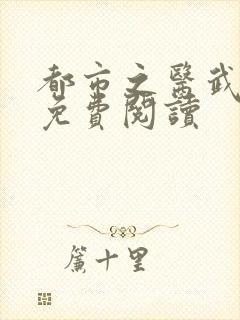 都市之醫武
免費閱讀
簾十里